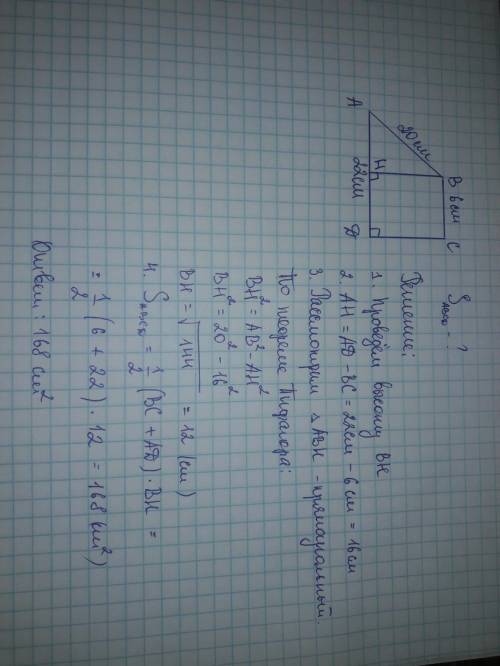 S ABCD - ?
B 6 см C
20 см
A H D
22 см
Решение:
1. Проведём высоту BH
2. AH = AD - BC = 22 см - 6 см = 16 см
3. Рассмотрим △ ABH - прямоугольный.
По теореме Пифагора:
BH² = AB² - AH²
BH² = 20² - 16²
BH = √144 = 12 (см)
4. S ABCD = 1/2 (BC + AD) · BH =
= 1/2 (6 + 22) · 12 = 168 см²)
Ответ: 168 см²